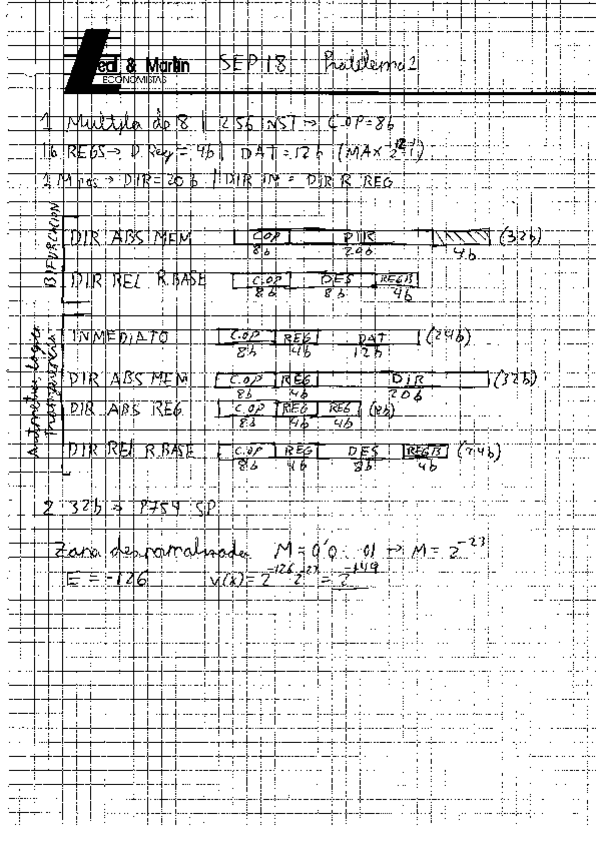 Leal & Martin SEP 18 Problema 2
ECONOMISTAS
1 Multiplo de 8 | 256 INST → C.OP = 8b
16 REGS → D.Reg = 4b | DAT = 12b (MAX 2^12-1)
1 M pos → DIR = 20b | DIR IN = DIR R REG
BIFURCACION
DIR ABS MEM C.OP DIR (32b)
8b 20b 4b
DIR REL R.BASE C.OP DES REGB
8b 8b 4b
Aritmetica, Logica
INMEDIATO C.OP REG DAT (24b)
8b 4b 12b
DIR ABS MEM C.OP REG DIR (32b)
8b 4b 20b
DIR ABS REG C.OP REG REG
8b 4b 4b
DIR REL R.BASE C.OP REG DES REGB (24b)
8b 4b 8b 4b
2 32b → P754 SP
Zona desnormalizada M = 0'0...01 → M = 2^-23
E = -126 v(x) = 2^-126 2^-23 = 2^-149